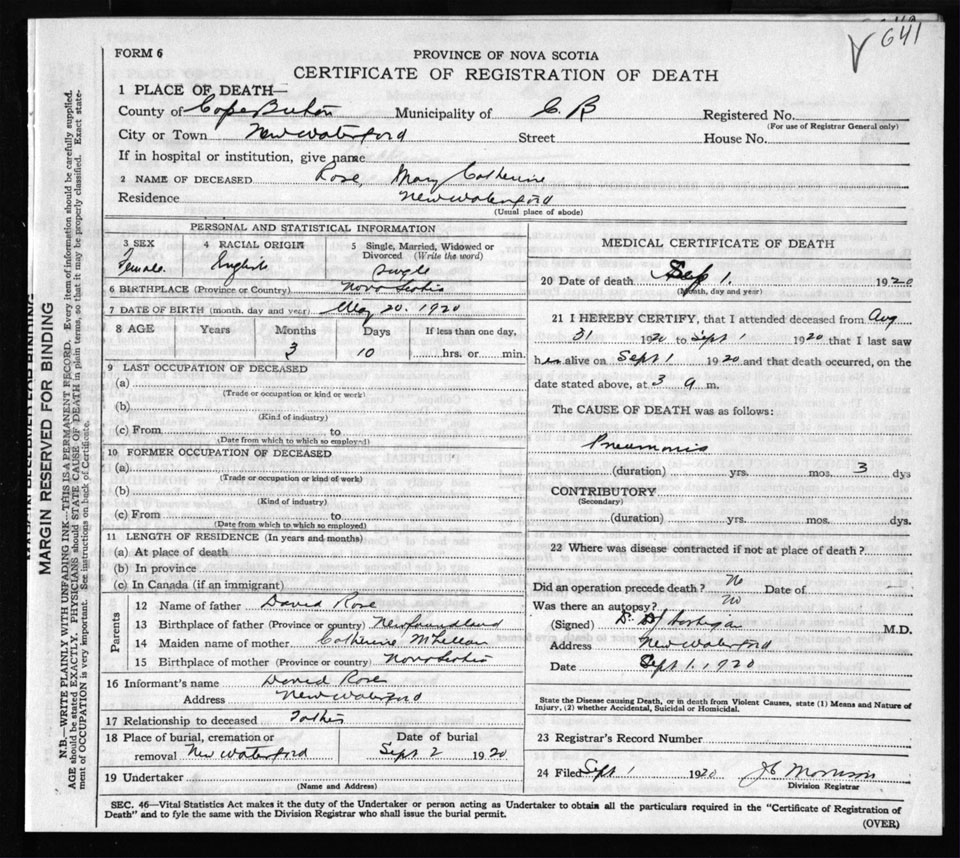 641
FORM 6
PROVINCE OF NOVA SCOTIA
CERTIFICATE OF REGISTRATION OF DEATH
1 PLACE OF DEATH—
County of Cape Breton Municipality of C. B Registered No.
(For use of Registrar General only)
City or Town New Waterford Street House No.
If in hospital or institution, give name
2 NAME OF DECEASED Rose, Mary Catherine
Residence New Waterford
(Usual place of abode)
PERSONAL AND STATISTICAL INFORMATION
3 SEX 4 RACIAL ORIGIN 5 Single, Married, Widowed or Divorced (Write the word)
Female. English Single
6 BIRTHPLACE (Province or Country) Nova Scotia
7 DATE OF BIRTH (month, day and year) May 20. 1920
8 AGE Years Months Days If less than one day,
3 10 hrs. or min.
9 LAST OCCUPATION OF DECEASED
(a)
(Trade or occupation or kind or work)
(b)
(Kind of industry)
(c) From to
(Date from which to which so employed)
10 FORMER OCCUPATION OF DECEASED
(a)
(Trade or occupation or kind of work)
(b)
(Kind of industry)
(c) From to
(Date from which to which so employed)
11 LENGTH OF RESIDENCE (In years and months)
(a) At place of death
(b) In province
(c) In Canada (if an immigrant)
Parents
12 Name of father David Rose
13 Birthplace of father (Province or country) Newfoundland
14 Maiden name of mother Catherine McLellan
15 Birthplace of mother (Province or country) Nova Scotia
16 Informant's name David Rose
Address New Waterford
17 Relationship to deceased Father
18 Place of burial, cremation or Date of burial
removal New Waterford Sept 2 1920
19 Undertaker
(Name and Address)
MEDICAL CERTIFICATE OF DEATH
20 Date of death Sep 1. 1920
(Month, day and year)
21 I HEREBY CERTIFY, that I attended deceased from Aug
31 1920 to Sept 1 1920 that I last saw
her alive on Sept 1 1920 and that death occurred, on the
date stated above, at 3 a m.
The CAUSE OF DEATH was as follows:
Pneumonia
(duration) yrs. mos. 3 dys
CONTRIBUTORY
(Secondary)
(duration) yrs. mos. dys.
22 Where was disease contracted if not at place of death?
Did an operation precede death? No Date of —
Was there an autopsy? No
(Signed) M.D.
Address New Waterford
Date Sept 1. 1920
State the Disease causing Death, or in death from Violent Causes, state (1) Means and Nature of
Injury, (2) whether Accidental, Suicidal or Homicidal.
23 Registrar's Record Number
24 Filed Sept 1 1920 Morrison
Division Registrar
SEC. 46—Vital Statistics Act makes it the duty of the Undertaker or person acting as Undertaker to obtain all the particulars required in the "Certificate of Registration of
Death" and to fyle the same with the Division Registrar who shall issue the burial permit.
(OVER)
MARGIN RESERVED FOR BINDING
N.B.—WRITE PLAINLY WITH UNFADING INK—THIS IS A PERMANENT RECORD. Every item of information should be carefully supplied.
AGE should be stated EXACTLY. PHYSICIANS should STATE CAUSE OF DEATH in plain terms, so that it may be properly classified. Exact state-
ment of OCCUPATION is very important. See instructions on back of Certificate.